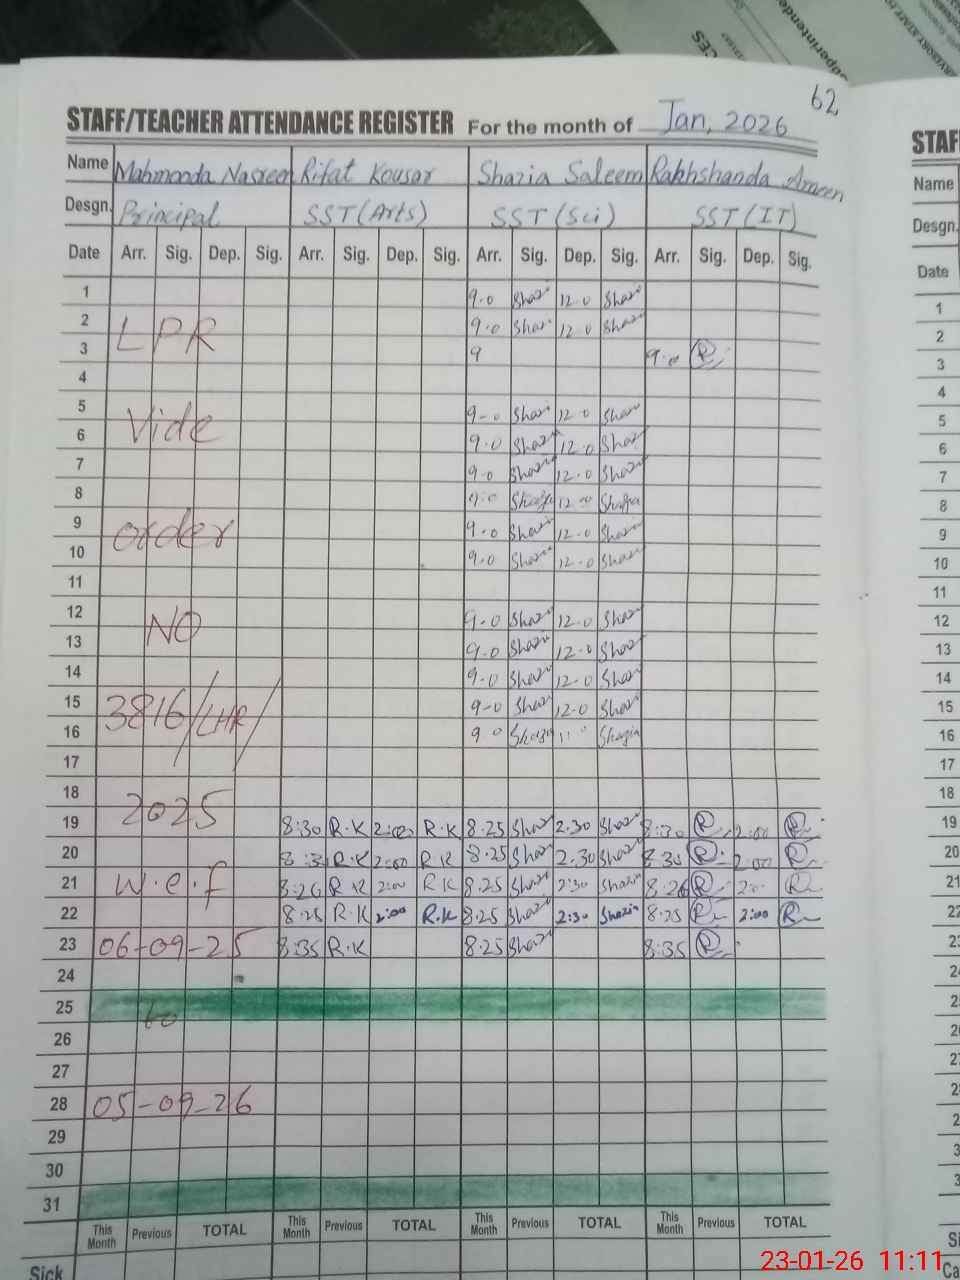 62
STAFF/TEACHER ATTENDANCE REGISTER For the month of Jan, 2026
Name Mahmooda Nasreen Rifat Kousar Shazia Saleem Rakhshanda Ameen
Desgn. Principal SST(Arts) SST (Sci) SST (IT)
Date Arr. Sig. Dep. Sig. Arr. Sig. Dep. Sig. Arr. Sig. Dep. Sig. Arr. Sig. Dep. Sig.
1 9.0 Shazi 12.0 Shazi
2 LPR 9.0 Shazi 12.0 Shazi
3 9 9.0 R
4
5 Vide 9-0 Shazi 12.0 Shazi
6 9.0 Shazi 12.0 Shazi
7 9.0 Shazia 12.0 Shazi
8 9.0 Shazia 12.0 Shazia
9 order 9.0 Shazi 12.0 Shazi
10 9.0 Shazi 12.0 Shazi
11
12 NO 9.0 Shazi 12.0 Shazi
13 9.0 Shazi 12.0 Shazi
14 9.0 Shazi 12.0 Shazi
15 3816/LHR/ 9-0 Shazi 12.0 Shazi
16 9.0 Shazia Shazia
17
18 2025
19 8:30 R.K 2:00 R.K 8.25 Shazi 2.30 Shazi 8:30 R 2:00 R
20 R.K 2:00 R.K 8.25 Shazi 2.30 Shazi 8:30 R 2:00 R
21 w.e.f 8:26 R.K 2:00 R.K 8.25 Shazi 2:30 Shazia 8:26 R R
22 8:25 R.K 2:00 R.K 8.25 Shazi 2:30 Shazia 8:25 R 2:00 R
23 06-09-25 8:35 R.K 8.25 Shazi 8:35 R
24
25 to
26
27
28 05-09-26
29
30
31
This Month Previous TOTAL This Month Previous TOTAL This Month Previous TOTAL This Month Previous TOTAL
Sick
STAF
Name
Desgn.
Date
1
2
3
4
5
6
7
8
9
10
11
12
13
14
15
16
17
18
19
20
21
22
23-01-26 11:11